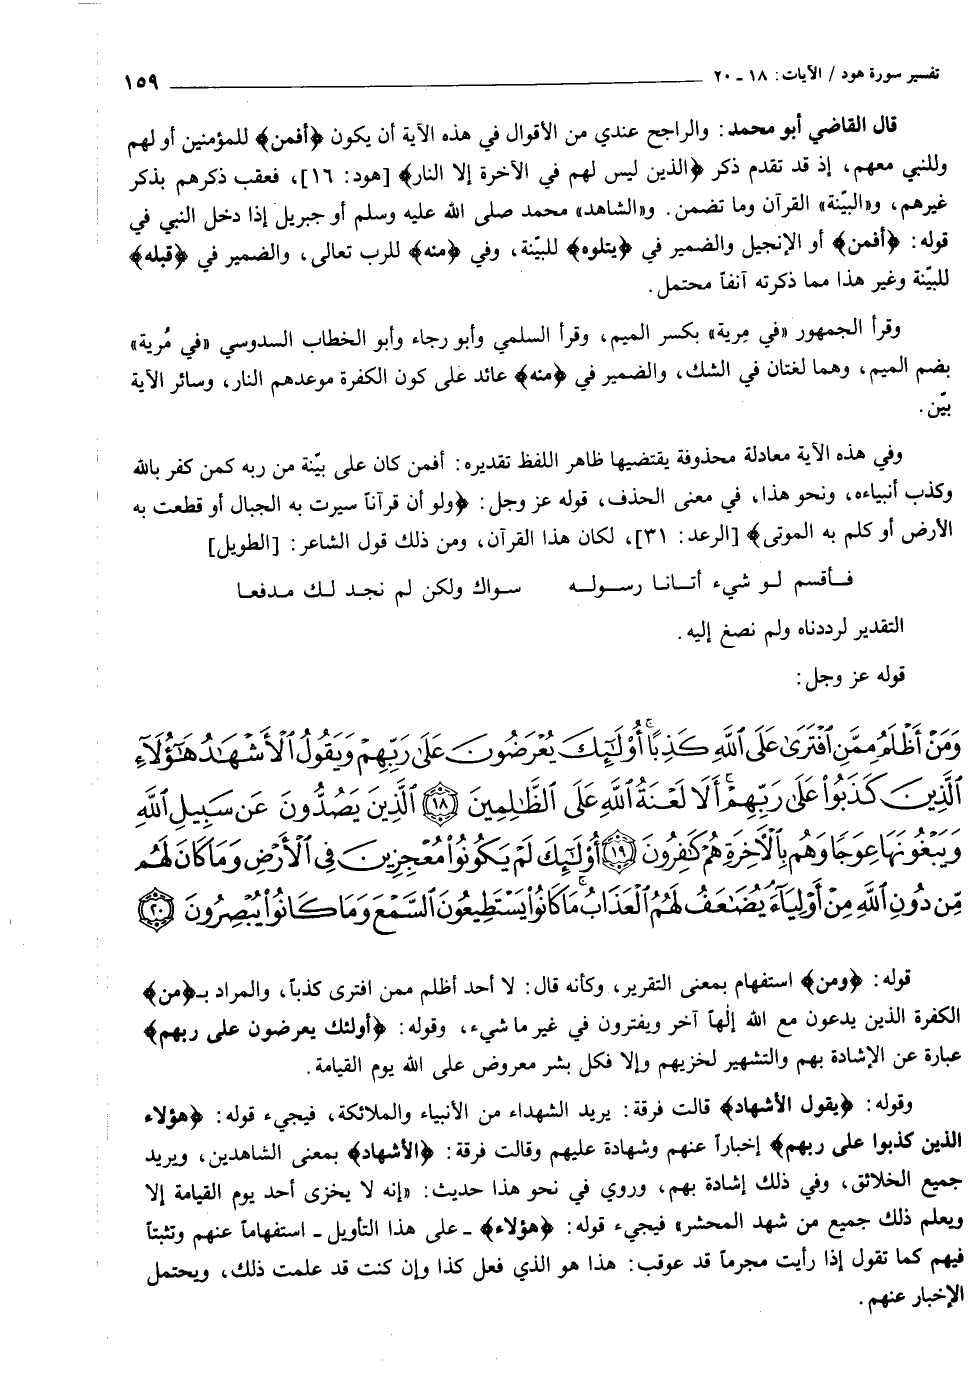 تفسير سورة هود / الآيات: ١٨ - ٢٠
١٥٩
قال القاضي أبو محمد: والراجح عندي من الأقوال في هذه الآية أن يكون ﴿أفمن﴾ للمؤمنين أو لهم
وللنبي معهم، إذ قد تقدم ذكر ﴿الذين ليس لهم في الآخرة إلا النار﴾ [هود: ١٦]، فعقب ذكرهم بذكر
غيرهم، و«البيّنة» القرآن وما تضمن. و«الشاهد» محمد صلى الله عليه وسلم أو جبريل إذا دخل النبي في
قوله: ﴿أفمن﴾ أو الإنجيل والضمير في ﴿يتلوه﴾ للبيّنة، وفي ﴿منه﴾ للرب تعالى، والضمير في ﴿قبله﴾
للبيّنة وغير هذا مما ذكرته آنفاً محتمل.
وقرأ الجمهور «في مِرية» بكسر الميم، وقرأ السلمي وأبو رجاء وأبو الخطاب السدوسي «في مُرية»
بضم الميم، وهما لغتان في الشك، والضمير في ﴿منه﴾ عائد على كون الكفرة موعدهم النار، وسائر الآية
بيّن.
وفي هذه الآية معادلة محذوفة يقتضيها ظاهر اللفظ تقديره: أفمن كان على بيّنة من ربه كمن كفر بالله
وكذب أنبياءه، ونحو هذا، في معنى الحذف، قوله عز وجل: ﴿ولو أن قرآناً سيرت به الجبال أو قطعت به
الأرض أو كلم به الموتى﴾ [الرعد: ٣١]، لكان هذا القرآن، ومن ذلك قول الشاعر: [الطويل]
فـأقسم لـو شيء أتـانـا رسـولـه    سـواك ولكن لم نجـد لـك مـدفعـا
التقدير لرددناه ولم نصغ إليه.
قوله عز وجل:
وَمَنْ أَظْلَمُ مِمَّنِ ٱفْتَرَىٰ عَلَى ٱللَّهِ كَذِبًا ۚ أُوْلَـٰٓئِكَ يُعْرَضُونَ عَلَىٰ رَبِّهِمْ وَيَقُولُ ٱلْأَشْهَـٰدُ هَـٰٓؤُلَآءِ
ٱلَّذِينَ كَذَبُوا۟ عَلَىٰ رَبِّهِمْ ۚ أَلَا لَعْنَةُ ٱللَّهِ عَلَى ٱلظَّـٰلِمِينَ ﴿١٨﴾ ٱلَّذِينَ يَصُدُّونَ عَن سَبِيلِ ٱللَّهِ
وَيَبْغُونَهَا عِوَجًا وَهُم بِٱلْـَٔاخِرَةِ هُمْ كَـٰفِرُونَ ﴿١٩﴾ أُوْلَـٰٓئِكَ لَمْ يَكُونُوا۟ مُعْجِزِينَ فِى ٱلْأَرْضِ وَمَا كَانَ لَهُم
مِّن دُونِ ٱللَّهِ مِنْ أَوْلِيَآءَ ۘ يُضَـٰعَفُ لَهُمُ ٱلْعَذَابُ ۚ مَا كَانُوا۟ يَسْتَطِيعُونَ ٱلسَّمْعَ وَمَا كَانُوا۟ يُبْصِرُونَ ﴿٢٠﴾
قوله: ﴿ومن﴾ استفهام بمعنى التقرير، وكأنه قال: لا أحد أظلم ممن افترى كذباً، والمراد بـ﴿من﴾
الكفرة الذين يدعون مع الله إلٰهاً آخر ويفترون في غير ما شيء، وقوله: ﴿أولئك يعرضون على ربهم﴾
عبارة عن الإشادة بهم والتشهير لخزيهم وإلا فكل بشر معروض على الله يوم القيامة.
وقوله: ﴿يقول الأشهاد﴾ قالت فرقة: يريد الشهداء من الأنبياء والملائكة، فيجيء قوله: ﴿هؤلاء
الذين كذبوا على ربهم﴾ إخباراً عنهم وشهادة عليهم وقالت فرقة: ﴿الأشهاد﴾ بمعنى الشاهدين، ويريد
جميع الخلائق، وفي ذلك إشادة بهم، وروي في نحو هذا حديث: «إنه لا يخزى أحد يوم القيامة إلا
ويعلم ذلك جميع من شهد المحشر» فيجيء قوله: ﴿هؤلاء﴾ - على هذا التأويل - استفهاماً عنهم وتثبتاً
فيهم كما تقول إذا رأيت مجرماً قد عوقب: هذا هو الذي فعل كذا وإن كنت قد علمت ذلك، ويحتمل
الإخبار عنهم.